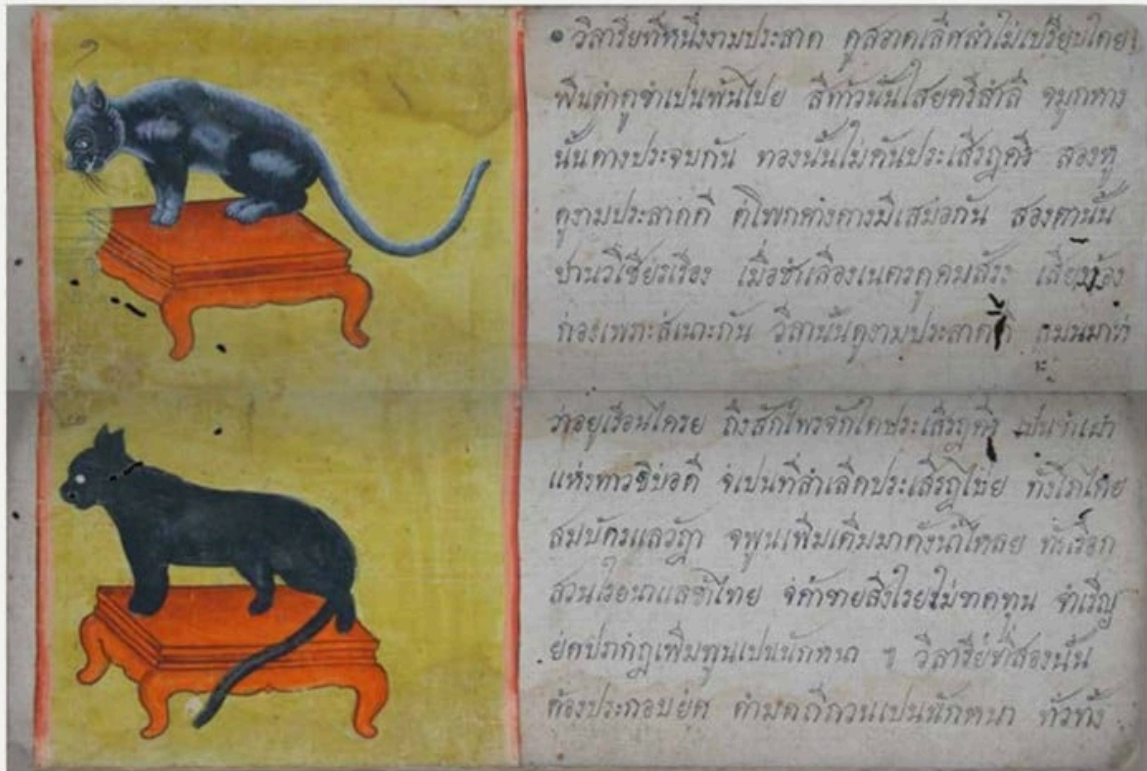 ๏ วิลารีย์ที่หนึ่งงามประสาด ดูสอาดเลิศล้ำไม่เปรียบใดย
พื้นดำดูขำเปนพ้นไปย สีท้าวนั้นใสย
นั้นหางประจบกัน ทองนั้นไม่ทันประเสริฏดี สองหู
ดูงามประสาดดี มีเสมอกัน สองตานั้น
ปานวิเชียรเรือง เมื่อชำเลืองเนตรดูคม เสียงร้อง
ก้องเพราะสเนาะกัน วิลานั้นดูงามประสาดดี
ว่าอยู่เรือนใดรย ถึงสักไพร่จักได้ประเสริฏดี เปนข้าเฝ้า
แห่งท้าวธิบอดี จเปนที่ล้ำเลิดประเสริฏไปย ทั้งโภไคย
สมบัตรแลวัฏา จพูนเพิ่มเติมมาดังน้ำไหลย ทั้งเรือก
สวนไร่นาแลข้าไทย จค้าขายสิ่งไรยไม่ขาดทุน จำเริญ
ยศปรากฎเพิ่มพูนเปนนักหนา ฯ วิลารีย์ที่สองนั้น
ต้องประกอบยศ ดำมดถี่ถ้วนเปนนักหนา ทั่วทั้ง